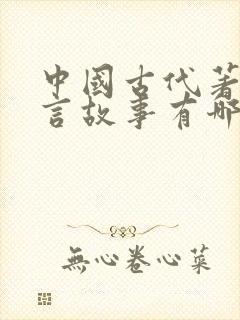 中國古代著
言故事有哪
無心卷心菜